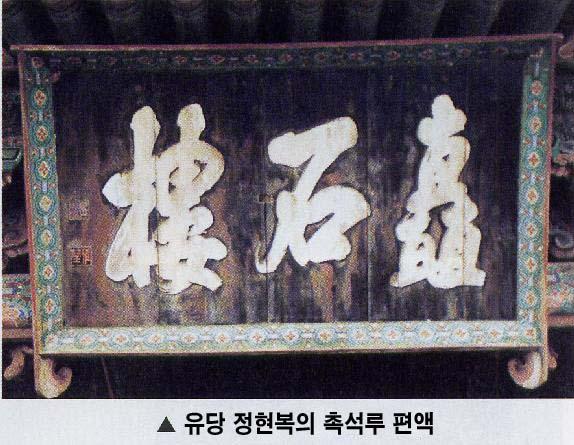 矗石樓
▲ 유당 정현복의 촉석루 편액